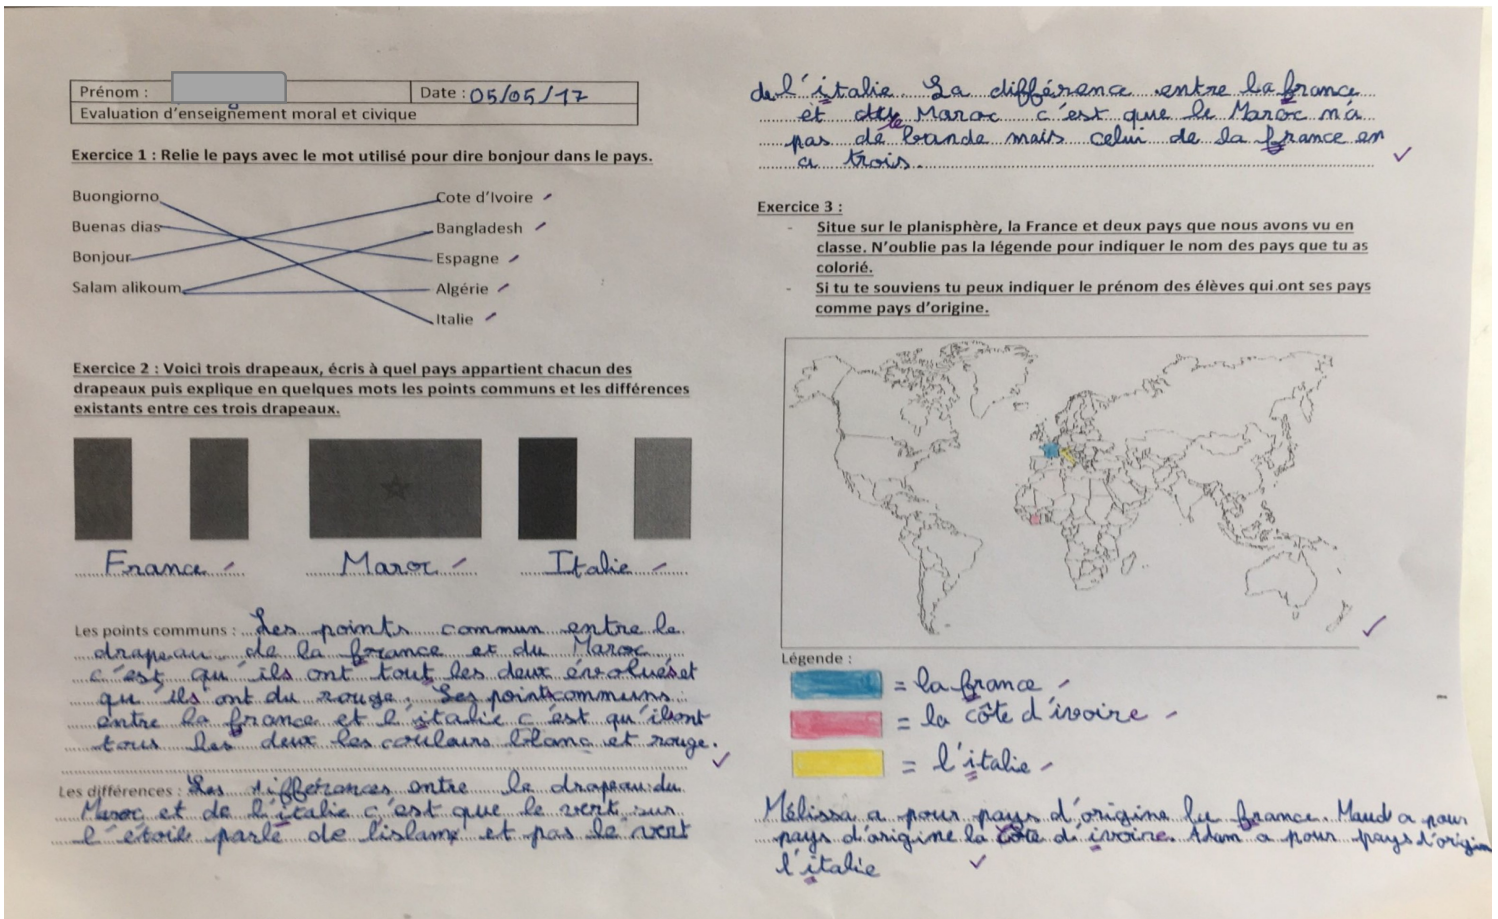 Prénom :
Date : 05/05/17
Evaluation d'enseignement moral et civique
Exercice 1 : Relie le pays avec le mot utilisé pour dire bonjour dans le pays.
Buongiorno
Cote d'Ivoire
Buenas dias
Bangladesh
Bonjour
Espagne
Salam alikoum
Algérie
Italie
Exercice 2 : Voici trois drapeaux, écris à quel pays appartient chacun des
drapeaux puis explique en quelques mots les points communs et les différences
existants entre ces trois drapeaux.
France
Maroc
Italie
Les points communs : Les points commun entre le
drapeau de la france et du Maroc
c'est qu'ils ont tout les deux évolués et
qu'ils ont du rouge. Les points communs
entre la france et l'italie c'est qu'ils ont
tous les deux les couleurs blanc et rouge.
Les différences : Les différences entre le drapeau du
Maroc et de l'italie c'est que le vert sur
l'étoile parle de l'islam et pas le vert
de l'italie La différence entre la france
et le Maroc c'est que le Maroc n'a
pas de bande mais celui de la france en
a trois.
Exercice 3 :
- Situe sur le planisphère, la France et deux pays que nous avons vu en
classe. N'oublie pas la légende pour indiquer le nom des pays que tu as
colorié.
- Si tu te souviens tu peux indiquer le prénom des élèves qui ont ses pays
comme pays d'origine.
Légende :
= la france
= la côte d'ivoire
= l'italie
Mélissa a pour pays d'origine la france. Maud a pour
pays d'origine la Côte d'ivoire. Adam a pour pays d'origin
l'italie